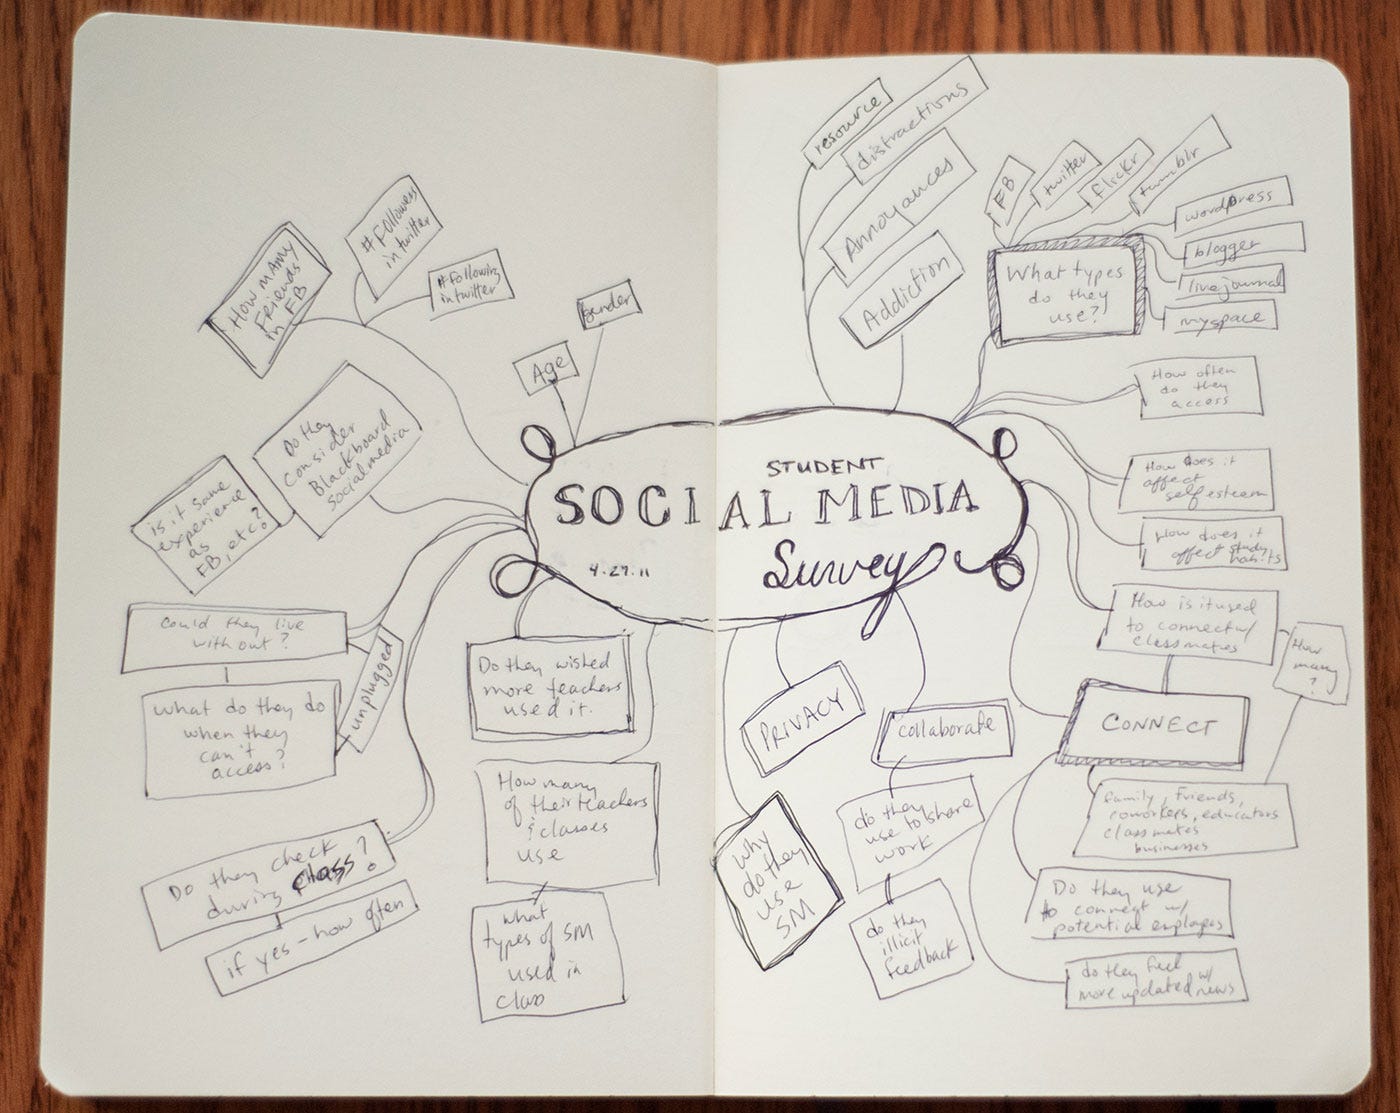 STUDENT
SOCIAL MEDIA
Survey
4.27.11
Gender
Age
# Followers
in twitter
# Following
in twitter
How many
Friends
in FB
Do they
consider
Blackboard
social media
is it same
experience
as
FB, etc?
Could they live
without?
unplugged
What do they do
when they
can't
access?
Do they check
during class?
if yes - how often
Do they wished
more teachers
used it.
How many
of their teachers
& classes
use
What
types of SM
used in
class
resource
distractions
Annoyances
Addiction
What types
do they
use?
FB
twitter
flickr
tumblr
wordpress
blogger
livejournal
myspace
How often
do they
access
How does it
affect
self esteem
How does it
affect study
habits
How is it used
to connect w/
classmates
How
many
?
CONNECT
family, Friends,
coworkers, educators
classmates
businesses
Do they use
to connect w/
potential employers
do they feel
more updated w/
news
PRIVACY
collaborate
do they
use to share
work
do they
illicit
feedback
Why
do they
use
SM